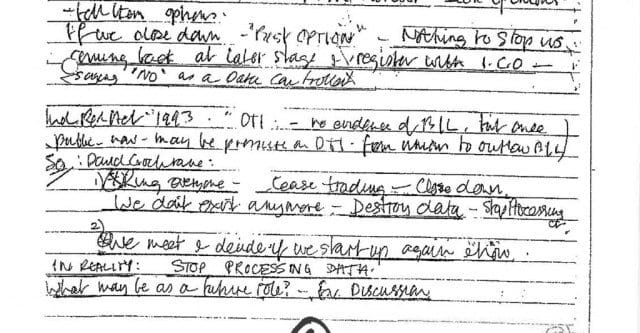 If we close down - "BEST OPTION" - Nothing to stop us
coming back at later stage & register with I.C.O -
saying 'NO' as a Data Controller
Ind Rel Act "1993. " DTI : - no evidence of B/L, but once
public - now - may be pressure on DTI - from union to outlaw B/L)
So : David Cochrane:
1) Asking everyone - Cease trading - Close down.
We don't exist anymore - Destroy data - Stop Processing
2)
We meet & decide if we start up again & how.
IN REALITY: STOP PROCESSING DATA.
What may be as a future role? - for Discussion